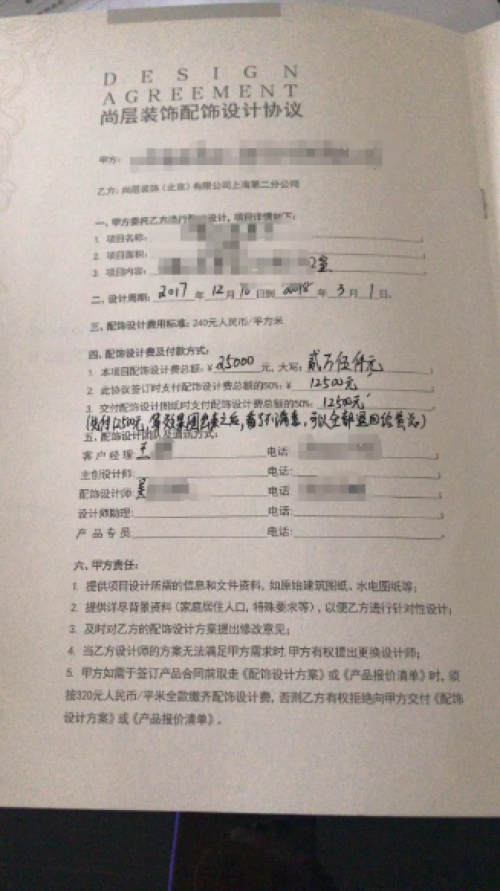 DESIGN
AGREEMENT
尚层装饰配饰设计协议
甲方:
乙方: 尚层装饰(北京)有限公司上海第二分公司
一、甲方委托乙方进行 设计, 项目详情如下:
1. 项目名称:
2. 项目面积:
3. 项目内容: 室
二、设计周期: 2017 年 12 月 10 日到 2018 年 3 月 1 日。
三、配饰设计费用标准: 240元人民币/平方米
四、配饰设计费及付款方式:
1. 本项目配饰设计费总额: ¥ 25000 元, 大写: 贰万伍仟元
2. 此协议签订时支付配饰设计费总额的50%: ¥ 12500元
3. 交付配饰设计图纸时支付配饰设计费总额的50%: 12500元
(先付12500元, 等效果图出来之后, 若不满意, 可以全部退回给 )
五、配饰设计团队及通讯方式:
客户经理: 王 电话:
主创设计师: 电话:
配饰设计师: 吴 电话:
设计师助理: 电话:
产品专员 电话:
六、甲方责任:
1. 提供项目设计所需的信息和文件资料, 如原始建筑图纸、水电图纸等;
2. 提供详尽背景资料(家庭居住人口, 特殊要求等), 以便乙方进行针对性设计;
3. 及时对乙方的配饰设计方案提出修改意见;
4. 当乙方设计师的方案无法满足甲方需求时, 甲方有权提出更换设计师;
5. 甲方如需于签订产品合同前取走《配饰设计方案》或《产品报价清单》时, 须
按320元人民币/平米全款缴齐配饰设计费, 否则乙方有权拒绝向甲方交付《配饰
设计方案》或《产品报价清单》。